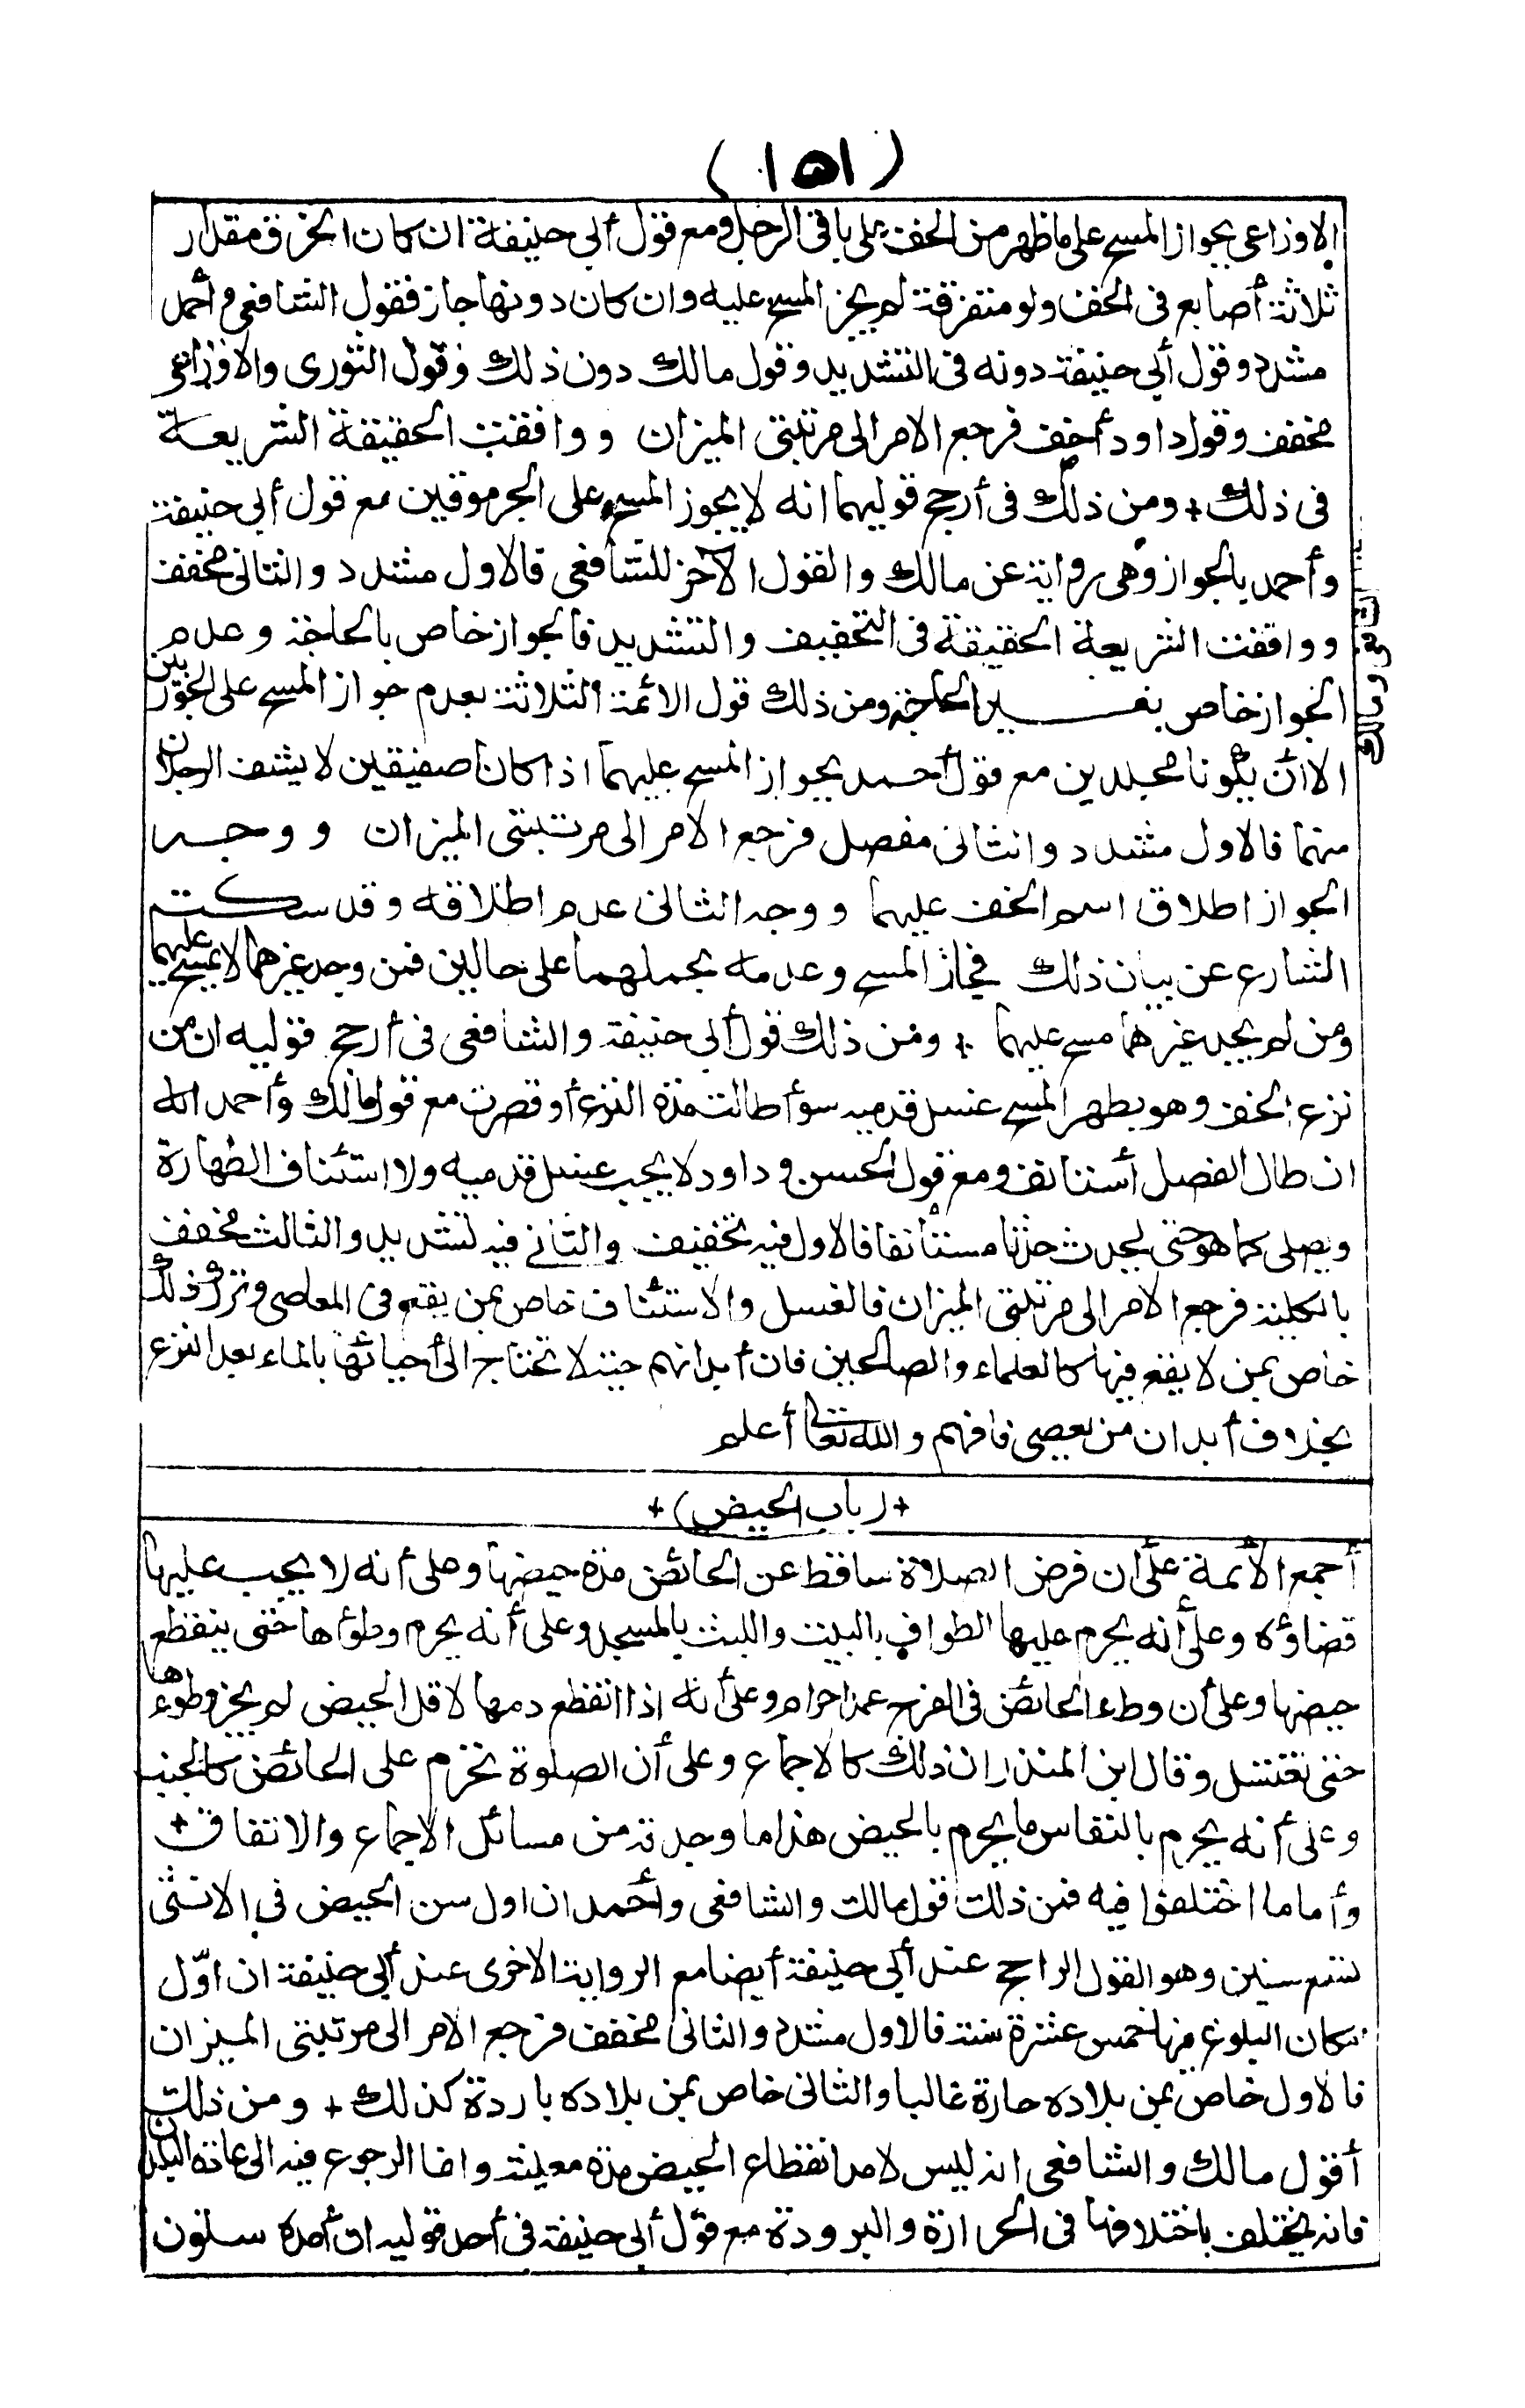 (١٥١)
الاوزاعى بجواز المسح على ما ظهر من الخف على باقى الرجل ومع قول أبى حنيفة ان كان الخرق مقدار
ثلاثة أصابع فى الخف ولو متفرقة لم يجز المسح عليه وان كان دونها جاز فقول الشافعى وأحمد
مشدد وقول أبى حنيفة دونه فى التشديد وقول مالك دون ذلك وقول الثورى والاوزاعى
مخفف وقول داود أخف فرجع الامر الى مرتبتى الميزان ووافقت الحقيقة الشريعة
فى ذلك + ومن ذلك فى أرجح قوليهما انه لا يجوز المسح على الجرموقين مع قول أبى حنيفة
وأحمد بالجواز وهى رواية عن مالك والقول الآخر للشافعى فالاول مشدد والثانى مخفف
ووافقت الشريعة الحقيقة فى التخفيف والتشديد فالجواز خاص بالحاجة وعدم
الجواز خاص بغير الحاجة ومن ذلك قول الائمة الثلاثة بعدم جواز المسح على الجوربين
الا أن يكونا مجلدين مع قول أحمد بجواز المسح عليهما اذا كانا صفيقين لا يشف الرجلان
منهما فالاول مشدد والثانى مفصل فرجع الامر الى مرتبتى الميزان ووجه
الجواز اطلاق اسم الخف عليهما ووجه الثانى عدم اطلاقه وقد سكت
الشارع عن بيان ذلك فجاز المسح وعدمه بحملهما على حالين فمن وجد غيرهما لا يمسح عليهما
ومن لم يجد غيرهما مسح عليهما + ومن ذلك قول أبى حنيفة والشافعى فى أرجح قوليه ان من
نزع الخف وهو بطهر المسح غسل قدميه سوأ طالت مدة النزع أو قصرت مع قول مالك وأحمد انه
ان طال الفصل أستانف ومع قول الحسن وداود لا يجب غسل قدميه ولا استئناف الطهارة
ويصلى كما هو حتى يحدث حدثا مستأنفا فالاول فيه تخفيف والثانى فيه تشديد والثالث مخفف
بالكلية فرجع الامر الى مرتبتى الميزان فالغسل والاستئناف خاص بمن يقع فى المعاصى وترك ذلك
خاص بمن لا يقع فيها كالعلماء والصالحين فان أبدانهم حية لا تحتاج الى أحيائها بالماء بعد النزع
بخلاف أبدان من يعصى فافهم والله تعالى أعلم
+ (باب الحيض) +
أجمع الأئمة على أن فرض الصلاة ساقط عن الحائض مدة حيضها وعلى أنه لا يجب عليها
قضاؤه وعلى أنه يحرم عليها الطواف بالبيت واللبث بالمسجد وعلى أنه يحرم وطؤها حتى ينقطع
حيضها وعلى أن وطء الحائض فى الفرج عمدا حرام وعلى أنه اذا انقطع دمها لاقل الحيض لم يجز وطوءها
حتى تغتسل وقال ابن المنذر ان ذلك كالاجماع وعلى أن الصلوة تحرم على الحائض كالجنب
وعلى أنه يحرم بالنفاس ما يحرم بالحيض هذا ما وجدته من مسائل الاجماع والاتفاق +
وأما ما اختلفوا فيه فمن ذلك قول مالك والشافعى وأحمد ان اول سن الحيض فى الانثى
تسع سنين وهو القول الراجح عند أبى حنيفة أيضا مع الرواية الاخرى عند أبى حنيفة ان اوّل
مكان البلوغ فيها خمس عشرة سنة فالاول مشدد والثانى مخفف فرجع الامر الى مرتبتى الميزان
فالاول خاص بمن بلاده حارة غالبا والثانى خاص بمن بلاده باردة كذلك + ومن ذلك
أقول مالك والشافعى انه ليس لامد انقطاع الحيض مدة معينة وانما الرجوع فيه الى عادة البلدان
فانه يختلف باختلافها فى الحرارة والبرودة مع قول أبى حنيفة فى أحد قوليه ان أمده ستون